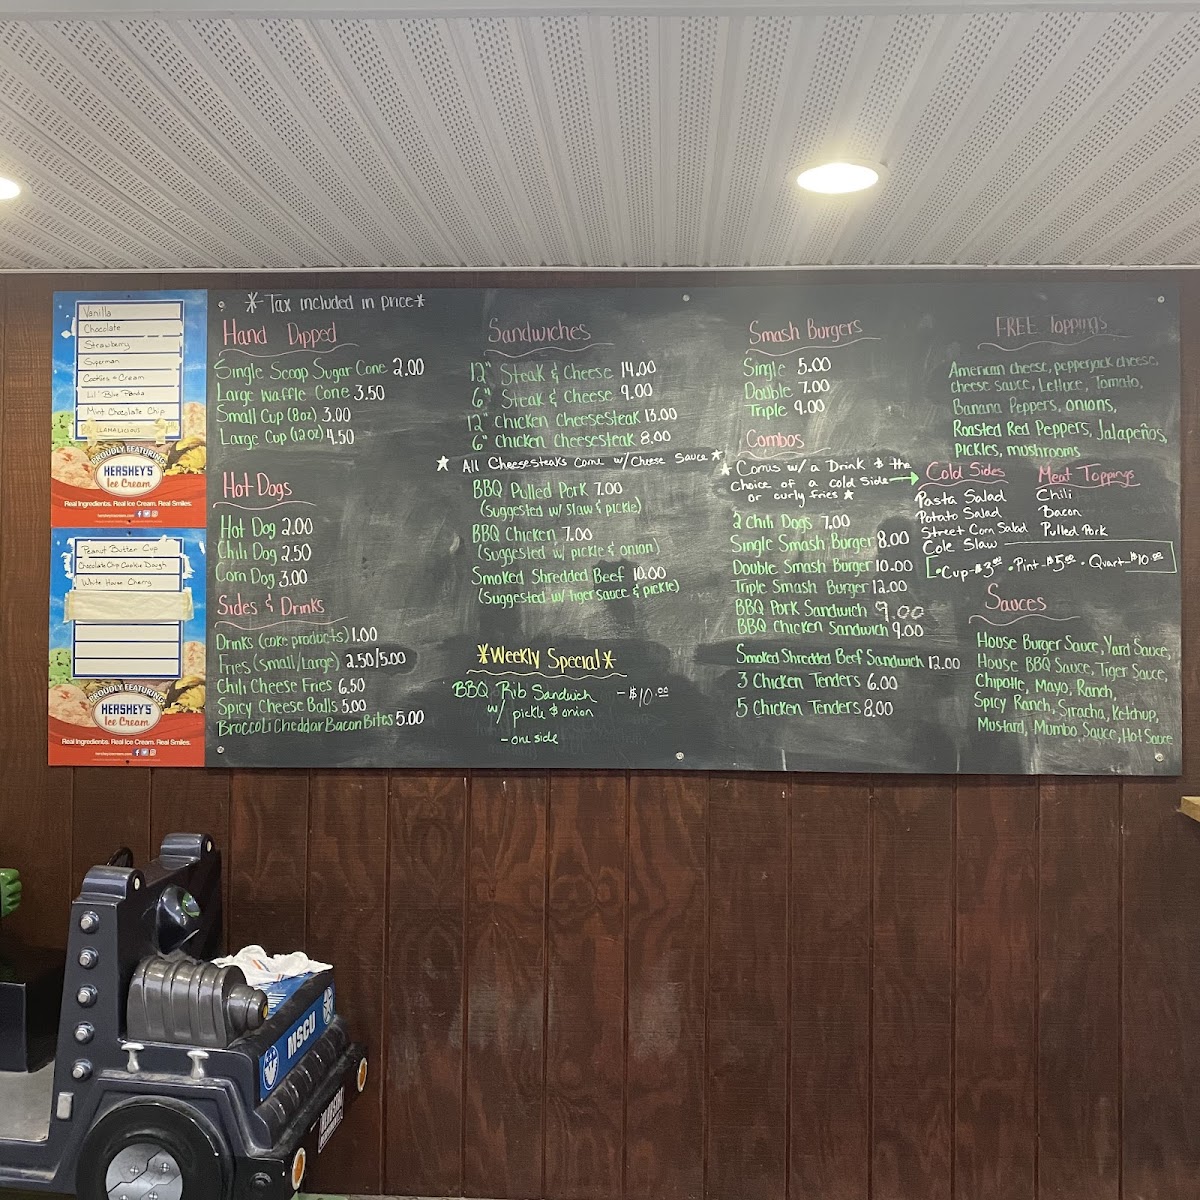 Vanilla
Chocolate
Strawberry
Superman
Cookies n Cream
Lil' Blue Panda
Mint Chocolate Chip
LLAMALICIOUS
PROUDLY FEATURING
HERSHEY'S
Ice Cream
Real Ingredients. Real Ice Cream. Real Smiles.
Peanut Butter Cup
Chocolate Chip Cookie Dough
White House Cherry
PROUDLY FEATURING
HERSHEY'S
Ice Cream
Real Ingredients. Real Ice Cream. Real Smiles.
* Tax included in price *
Hand Dipped
Single Scoop Sugar Cone 2.00
Large Waffle Cone 3.50
Small Cup (8oz) 3.00
Large Cup (12oz) 4.50
Hot Dogs
Hot Dog 2.00
Chili Dog 2.50
Corn Dog 3.00
Sides & Drinks
Drinks (coke products) 1.00
Fries (small/large) 2.50/5.00
Chili Cheese Fries 6.50
Spicy Cheese Balls 5.00
Broccoli Cheddar Bacon Bites 5.00
Sandwiches
12" Steak & Cheese 14.00
6" Steak & Cheese 9.00
12" Chicken Cheesesteak 13.00
6" Chicken Cheesesteak 8.00
★ All Cheesesteaks Come w/ Cheese Sauce ★
BBQ Pulled Pork 7.00
(Suggested w/ slaw & pickle)
BBQ Chicken 7.00
(Suggested w/ pickle & onion)
Smoked Shredded Beef 10.00
(Suggested w/ tiger sauce & pickle)
*Weekly Special*
BBQ Rib Sandwich - $10.00
w/ pickle & onion
- one side
Smash Burgers
Single 5.00
Double 7.00
Triple 9.00
Combos
★ Comes w/ a Drink & the
choice of a cold side →
or curly fries ★
2 Chili Dogs 7.00
Single Smash Burger 8.00
Double Smash Burger 10.00
Triple Smash Burger 12.00
BBQ Pork Sandwich 9.00
BBQ Chicken Sandwich 9.00
Smoked Shredded Beef Sandwich 12.00
3 Chicken Tenders 6.00
5 Chicken Tenders 8.00
FREE Toppings
American cheese, pepperjack cheese,
cheese sauce, Lettuce, Tomato,
Banana Peppers, onions,
Roasted Red Peppers, Jalapeños,
Pickles, mushrooms
Cold Sides
Pasta Salad
Potato Salad
Street Corn Salad
Cole Slaw
Meat Toppings
Chili
Bacon
Pulled Pork
• Cup - $3.00 • Pint - $5.00 • Quart - $10.00
Sauces
House Burger Sauce, Yard Sauce,
House BBQ Sauce, Tiger Sauce,
Chipotle, Mayo, Ranch,
Spicy Ranch, Siracha, Ketchup,
Mustard, Mumbo Sauce, Hot Sauce
MSCU